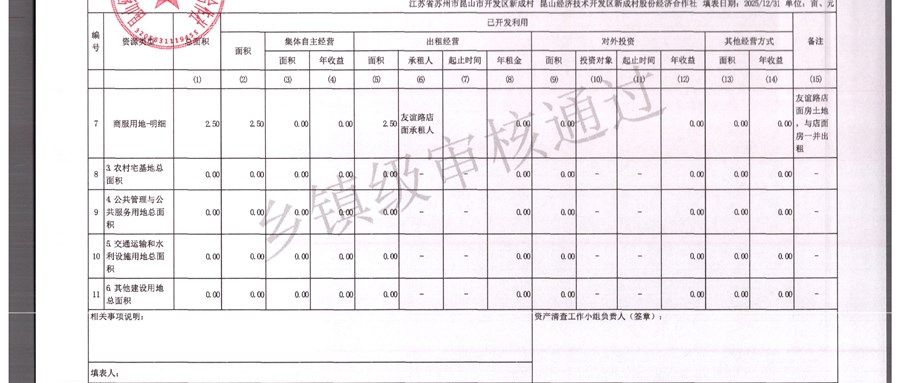 江苏省苏州市昆山市开发区新成村 昆山经济技术开发区新成村股份经济合作社 填表日期: 2025/12/31 单位: 亩、元
编号 资源类型 总面积 已开发利用 备注
面积 集体自主经营 出租经营 对外投资 其他经营方式
面积 年收益 面积 承租人 起止时间 年租金 面积 投资对象 起止时间 年收益 面积 年收益
(1) (2) (3) (4) (5) (6) (7) (8) (9) (10) (11) (12) (13) (14) (15)
7 商服用地-明细 2.50 2.50 0.00 0.00 2.50 友谊路店面承租人 0.00 0.00 0.00 0.00 0.00 友谊路店面房土地,与店面房一并出租
8 3.农村宅基地总面积 0.00 0.00 0.00 0.00 0.00 - - 0.00 0.00 - - 0.00 0.00 0.00
9 4.公共管理与公共服务用地总面积 0.00 0.00 0.00 0.00 0.00 - - 0.00 0.00 - - 0.00 0.00 0.00
10 5.交通运输和水利设施用地总面积 0.00 0.00 0.00 0.00 0.00 - - 0.00 0.00 - - 0.00 0.00 0.00
11 6.其他建设用地总面积 0.00 0.00 0.00 0.00 0.00 - - 0.00 0.00 - - 0.00 0.00 0.00
相关事项说明: 资产清查工作小组负责人(签章):
填表人:
乡镇级审核通过